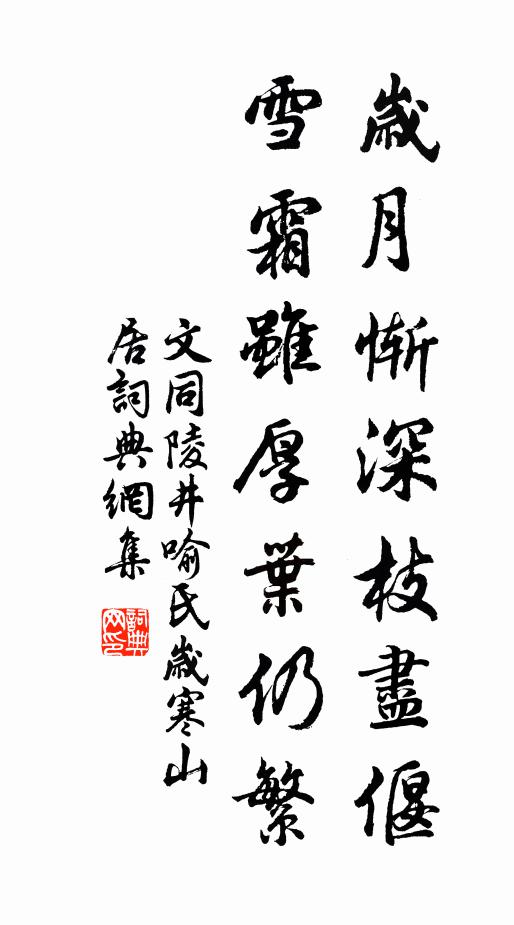 歲月惭深枝盡偃
雪霜雖厚葉仍繁
文同陵井喻氏歲寒山
居詞典網集
詞典
网印